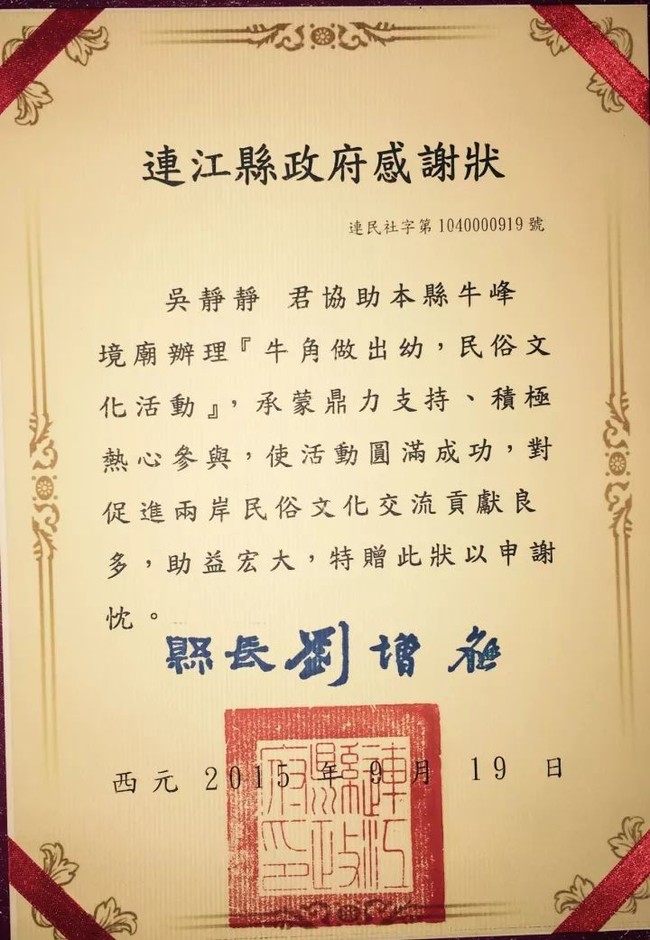 連江縣政府感謝狀
連民社字第1040000919號
吳靜靜 君協助本縣牛峰
境廟辦理『牛角做出幼，民俗文
化活動』，承蒙鼎力支持、積極
熱心參與，使活動圓滿成功，對
促進兩岸民俗文化交流貢獻良
多，助益宏大，特贈此狀以申謝
忱。
縣長劉增應
西元 2015 年 9 月 19 日
連江
縣政
府印